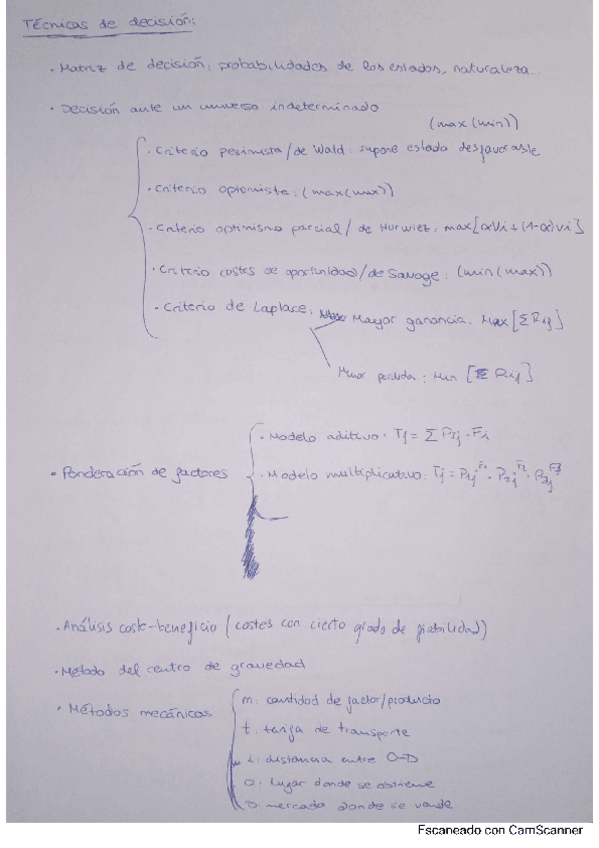 Técnicas de decisión:
· Matriz de decisión: probabilidades de los estados, naturaleza...
· Decisión ante un universo indeterminado
(max(min))
· Criterio pesimista/de Wald: supone estado desfavorable
· Criterio optimista: (max(max))
· Criterio optimismo parcial/ de Hurwiez: max[αVi + (1-α)vi]
· Criterio costes de oportunidad/de Savage: (min(max))
· Criterio de Laplace: Mayor ganancia: Max [ΣRij]
Menor perdida: Min [Σ Rij]
· Ponderación de factores
· Modelo aditivo: Tj = Σ Pij · Fi
· Modelo multiplicativo: Tj = P1j^F1 · P2j^F2 · P3j^F3
· Análisis coste-beneficio (costes con cierto grado de fiabilidad)
· Método del centro de gravedad
· Métodos mecánicos
m: cantidad de factor/producto
t: tarifa de transporte
L: distancia entre O-D
O: lugar donde se obtiene
D: mercado donde se vende
Escaneado con CamScanner